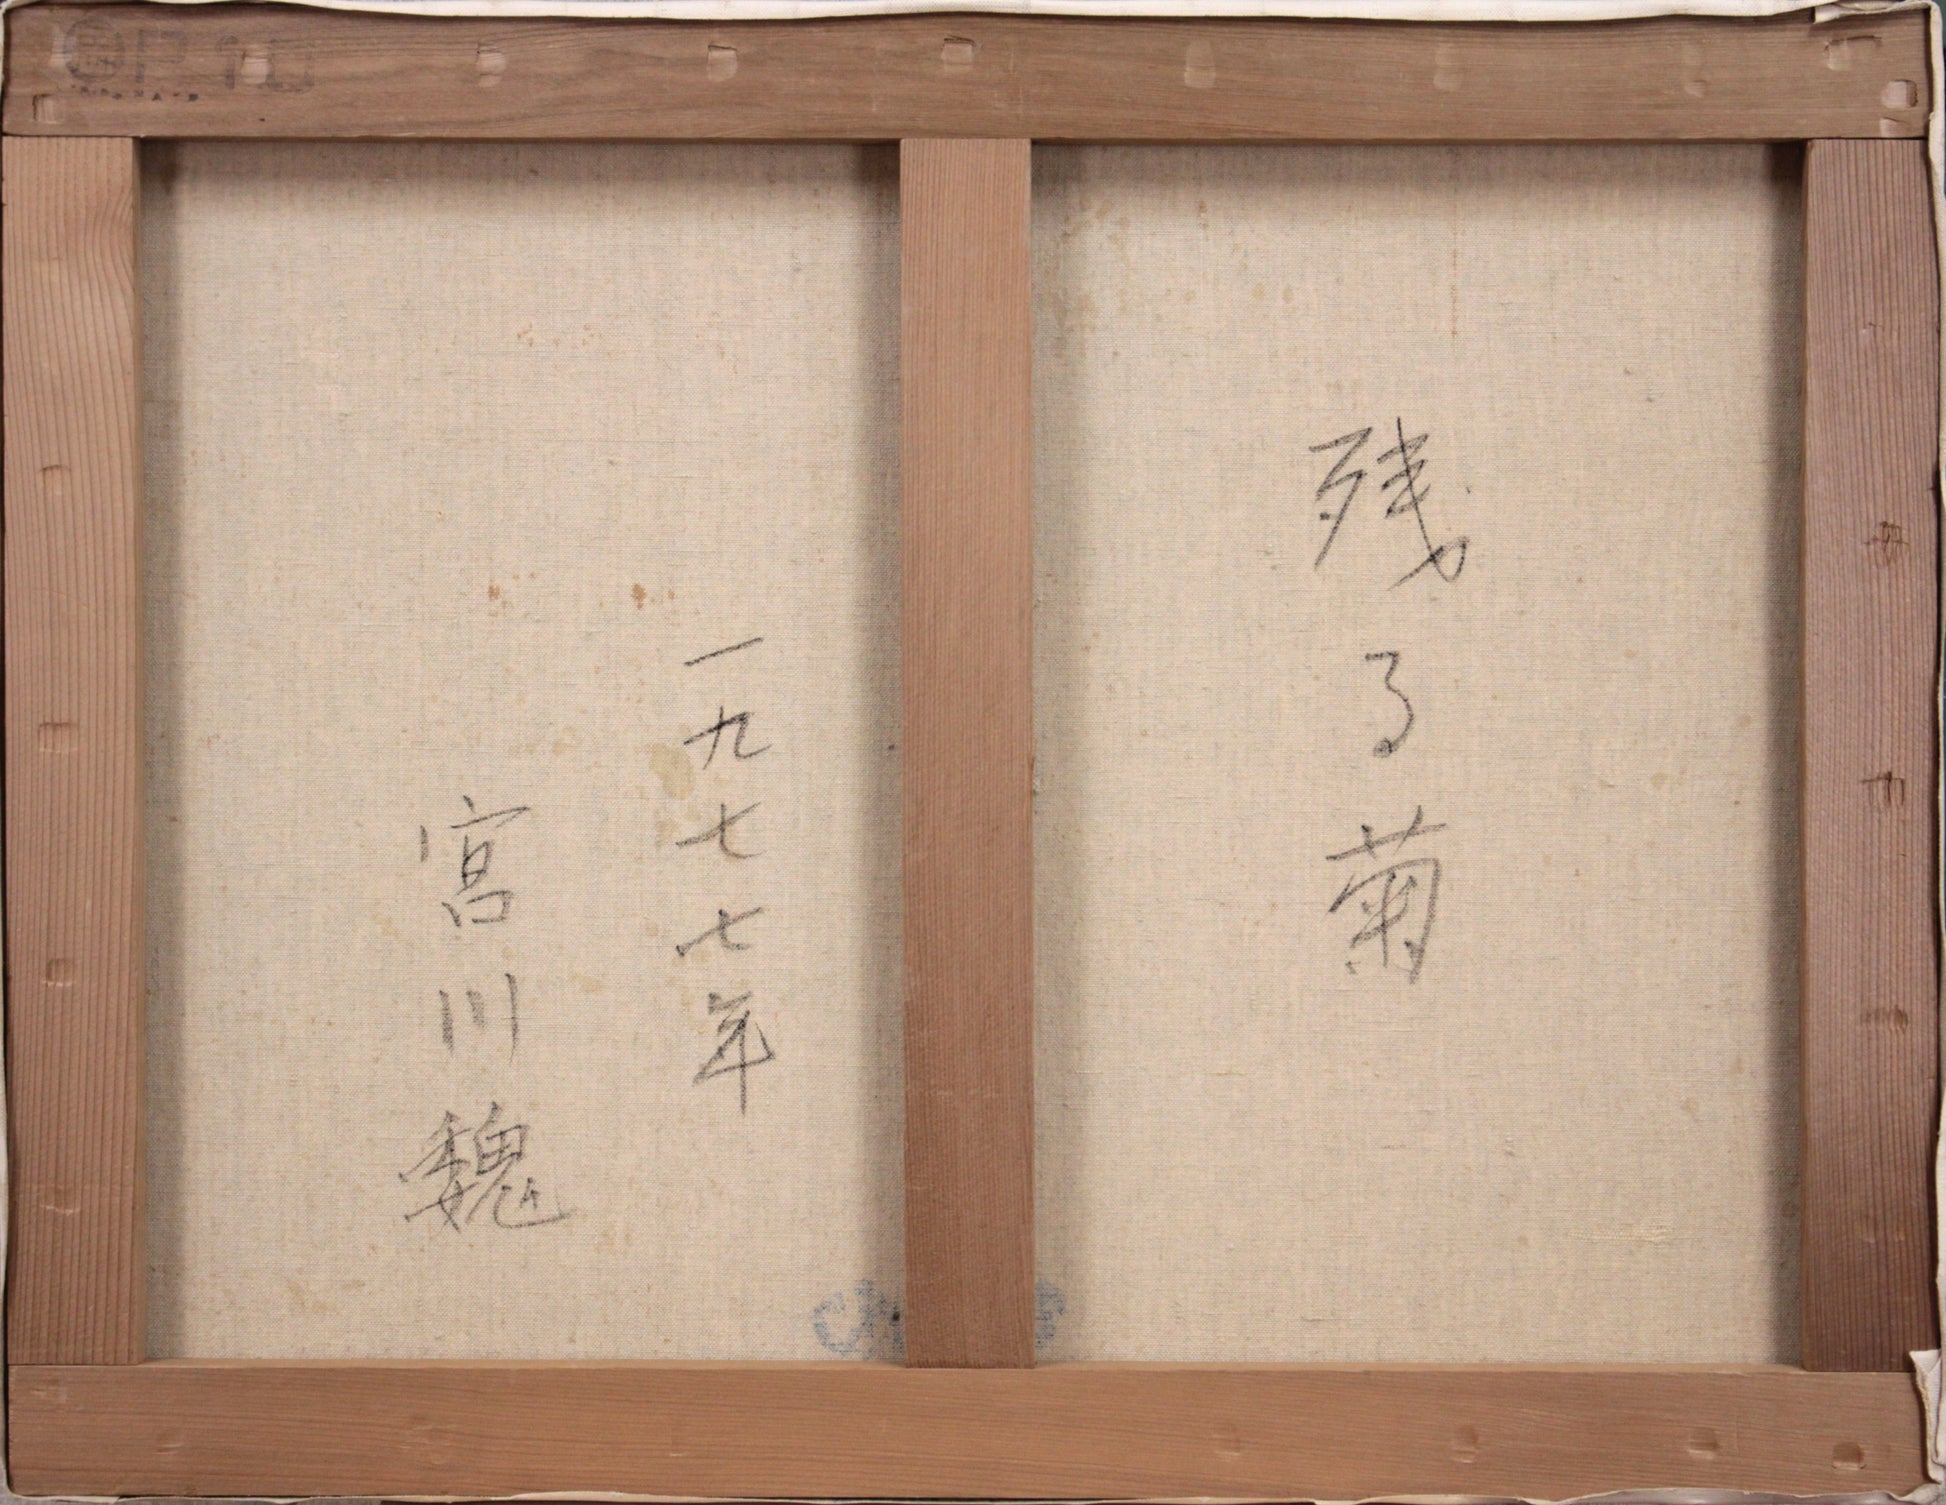 残る菊
一九七七年
宮川魏